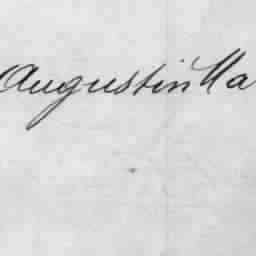 Augustin Ma